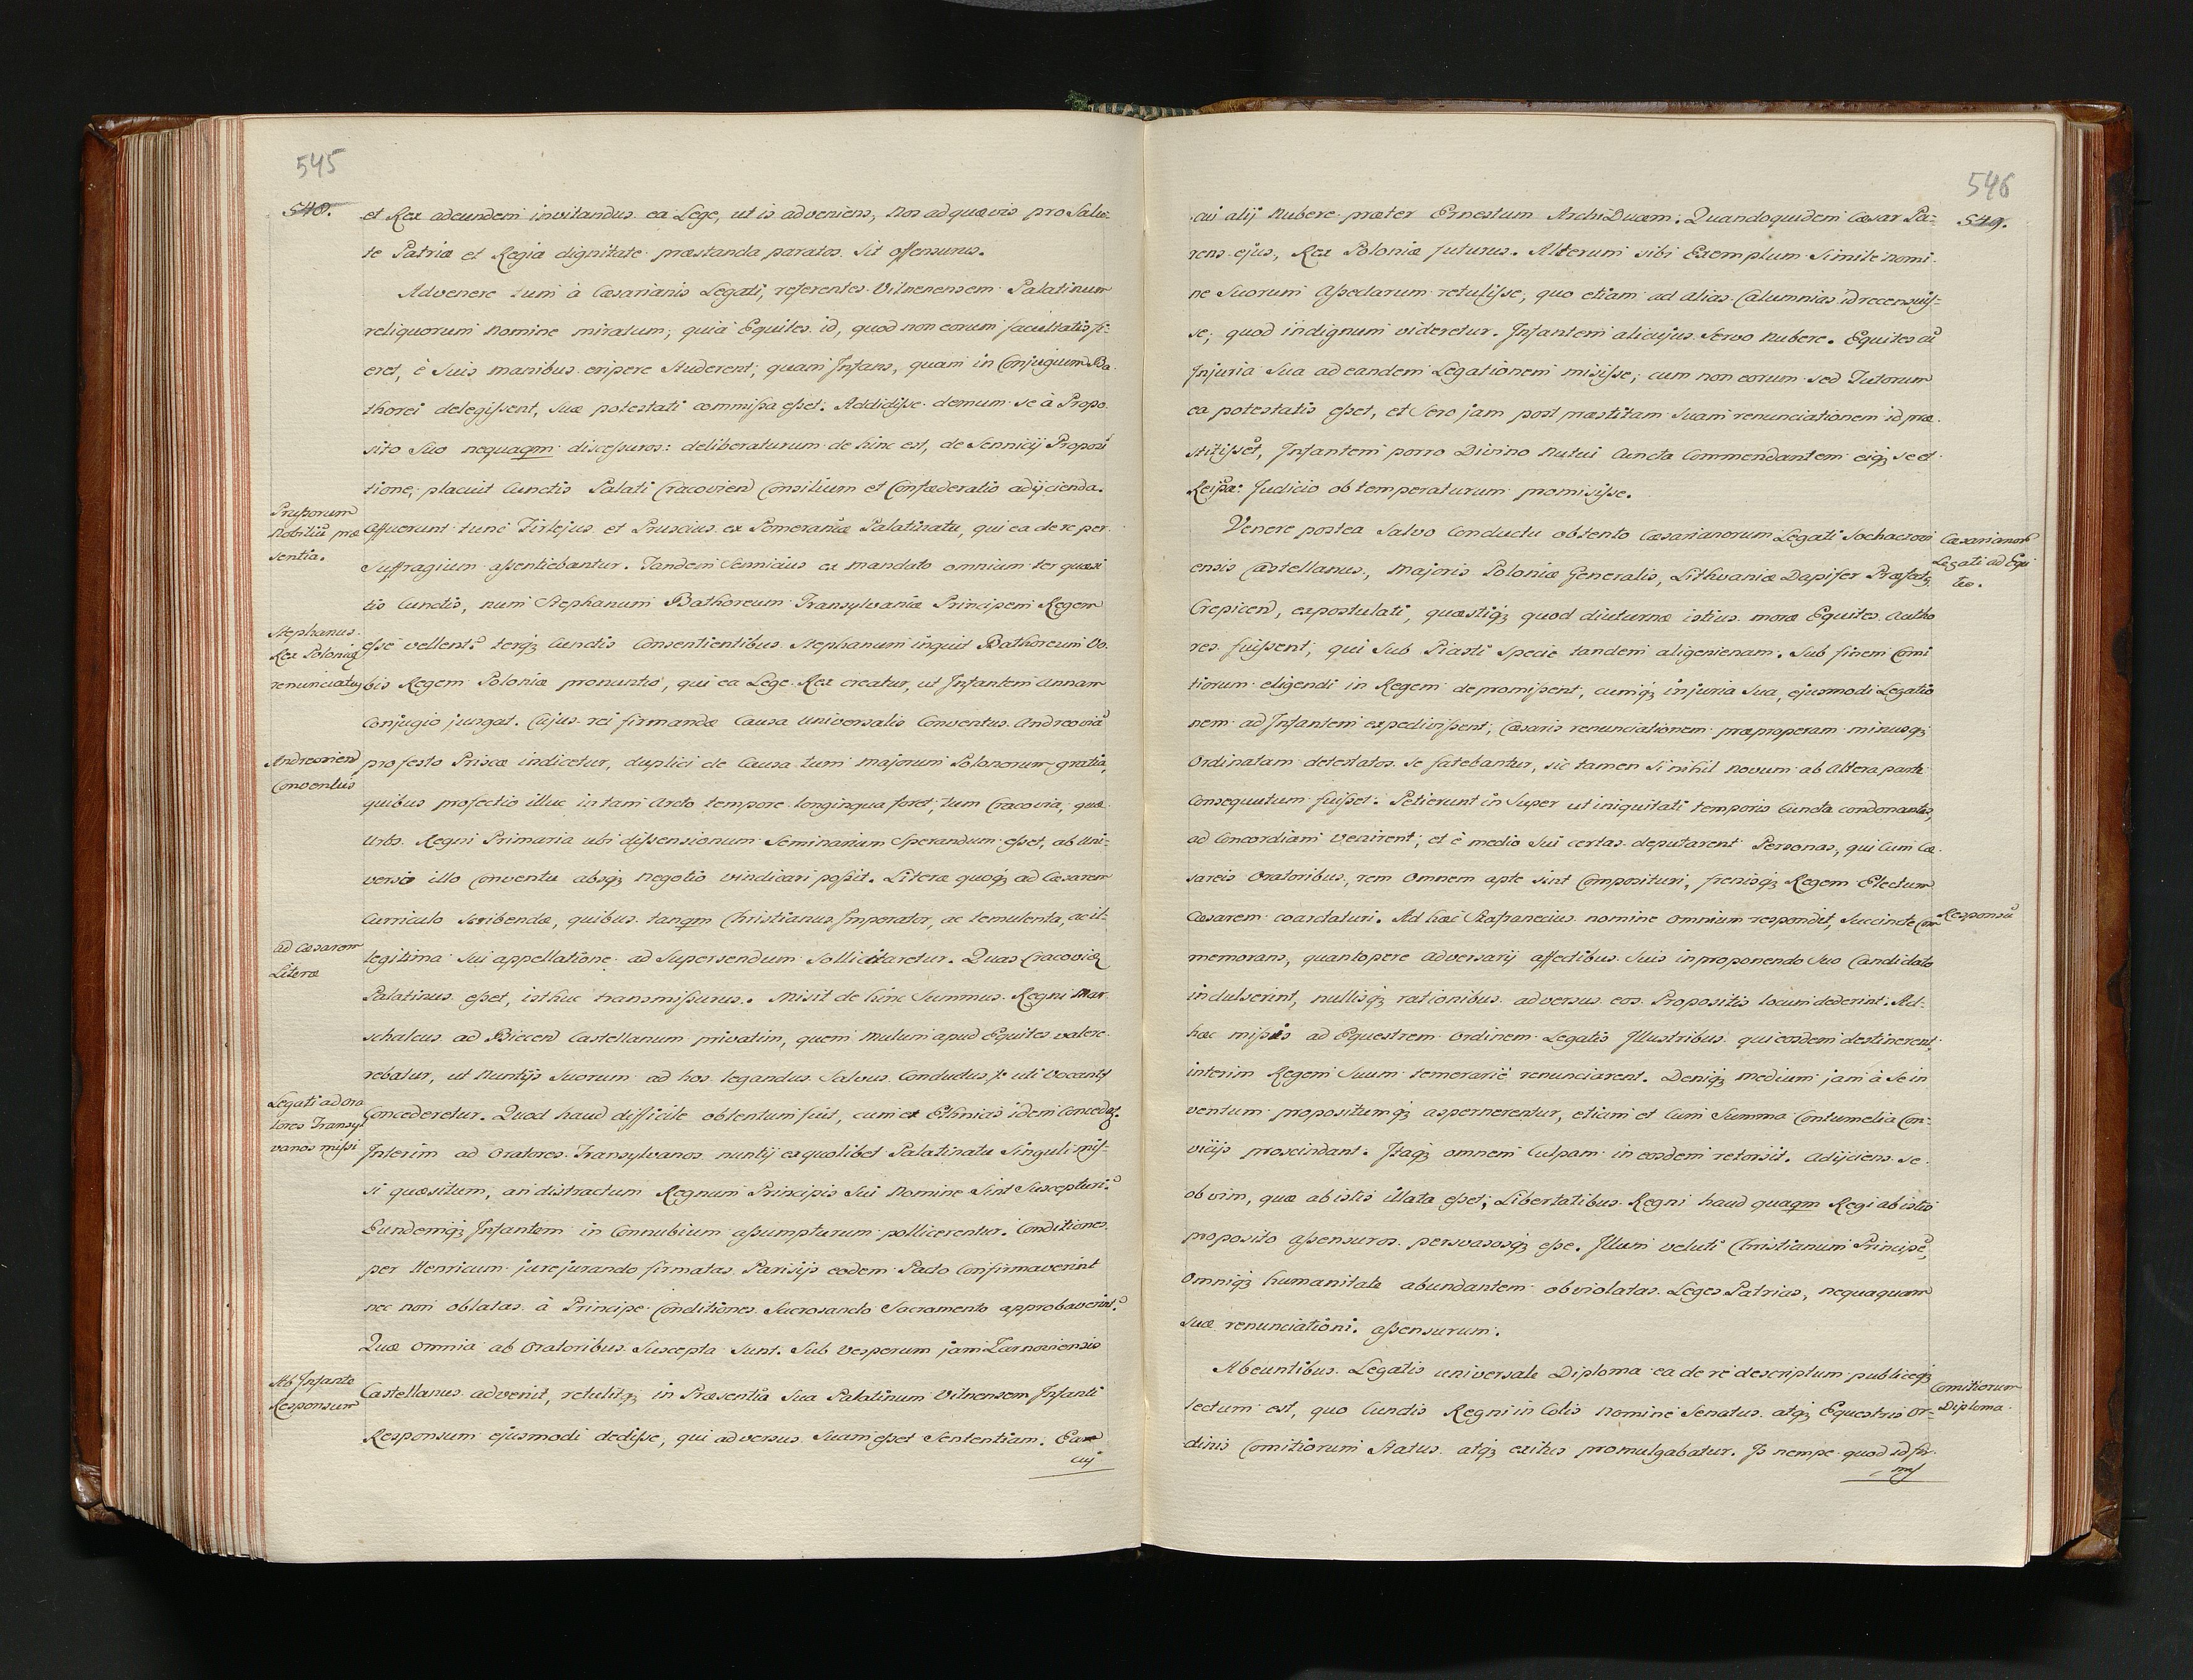 545
548.
et Rex adeundem invitandus ea Lege, ut is adveniens, nos ad quævis pro Salu-
te Patriæ et Regia dignitate præstanda paratos sit offensurus.
Advenere tum à Cæsarianis Legati, referentes Vilnenensem Palatinum
reliquorum Nomine miratum, quia Equites id, quod non eorum facultatis fi-
eret, è Suis manibus eripere Studerent; quam Infans, quam in Conjugium Ba-
thorei delegissent, suæ potestati commissa esset. Addidisse demum se à Propo
sito Suo nequaqm discessuros: deliberaturum de hinc est, de Sennicij Proposi
tione, placuit Cunctis Palati Cracovien Consilium et Confæderatio adijcienda.
Prussorum
Nobiliũ præ
sentia.
Affuerunt tunc Firlejus et Pruscius ex Pomeraniæ Palatinatu, qui ea de re per
Suffragium assentiebantur. Tandem Sennicius ex mandato omnium ter quæsi
tis Cunctis, num Stephanum Bathoreum Transylvaniæ Principem Regem
Stephanus
Rex Poloniæ
renunciatus
esse vellent? terq; Cunctis Consentientibus Stephanum inquit Bathoreum Vo
bis Regem Poloniæ pronuntio, qui ea Lege Rex creatur, ut Infantem Annam
Conjugio jungat. Cujus rei firmandæ Causa universalis Conventus Andreoviã
Andreovien
Conventus
pro festo Priscæ indicetur, duplici de Causa tum majorum Polonorum gratia,
quibus profectio illuc in tam arcto tempore longinqua foret; tum Cracovia, quæ
Urbs Regni Primaria ubi dissensionum Seminarium Sperandum esset, ab Uni-
verso illo Conventu absq; negotio vindicari possit. Literæ quoq; ad Cæsarem
Curriculo scribendæ, quibus tanqm Christianus Imperator, ac temulenta, ac il-
ad Cæsarem
Literæ
legitima sui appellatione ad Supersendum Sollicitaretur. Quas Cracoviæ
Palatinus esset, isthuc transmissurus. Misit de hinc Summus Regni Mar
schalcus ad Biecen Castellanum privatim, quem multum apud Equites valere
rebatur, ut Nuntijs Suorum ad hos legandus Salvus Conductus uti vocant
Legati ad Ora
tores Transyl
vanos missi
Concederetur. Quod haud difficile obtentum fuit, cum et Ethnicis idem concedat.
Interim ad Oratores Transylvanos nuntij ex quolibet Palatinatu Singuli mis-
si quæsitum, an distractum Regnum Principis Sui Nomine Sint Suscepturi?
Eundemq; Infantem in Connubium assumpturum pollicerentur. Conditiones
per Henricum jurejurando firmatas Parisijs eodem Pacto Confirmaverint
nec non oblatas à Principe Conditiones Sacrosancto Sacramento approbaverint?
Quæ omnia ab Oratoribus Suscepta Sunt. Sub Vesperum jam Tarnoviensis
Ab Infante
Responsum
Castellanus advenit, retulitq; in Præsentia Sua Palatinum Vilnensem Infanti
Responsum ejusmodi dedisse, qui adversus Suam esset Sententiam. Eam
cuj
546
549.
cui alij Nubere præter Ernestum ArchiDucem. Quandoquidem Cæsar Pa-
rens ejus, Rex Poloniæ futurus. Alterum sibi Exemplum Simile nomi-
ne Suorum Assedarum retulisse, quo etiam ad alias Calumnias id recensuis-
se; quod indignum videretur. Infantem alicujus Servo nubere. Equites cũ
Injuria Sua ad eandem Legationem misisse; cum non eorum sed Tutorum
ea potestatis esset, et Sero jam post præstitam Suam renunciationem id præ
stitisset, Infantem porro Divino Nutui Cuncta Commendantem eiq; se et
Reipcæ: Judicio obtemperaturum promisisse.
Venere postea Salvo Conductu obtento Cæsarianorum Legati Sochaczovi
ensis Castellanus, Majoris Poloniæ Generalis, Lithvaniæ Dapifer Præfect9
Cæsarianorũ
Legati ad Equi
tes.
Crepicen, expostulati, quæstiq; quod diuturnæ istius moræ Equites Autho
res fuissent; qui Sub Piasti Specie tandem aligenienam. Sub finem Comi
tiorum eligendi in Regem depromissent, cumq; injuria Sua, ejusmodi Legatio
nem ad Infantem expedivissent; Cæsaris renunciationem præproperam minusq;
Ordinatam detestatos se fatebantur, sic tamen Si nihil novum ab Altera parte
Consequutum fuisset. Petierunt in Super ut iniquitati temporis Cuncta condonantes,
ad Concordiam Venirent; et è medio Sui certas deputarent Personas, qui Cum Cæ
sareis Oratoribus, rem Omnem apte sint Composituri, frenisq; Regem Electum
Cæsarem coarctaturi. Ad hæc Szafranecius nomine omnium respondit, Succincte Com
Responsũ
memorans, quantopere adversarij affectibus Suis in proponendo Suo Candidato
indulserint, nullisq; rationibus adversus eos Propositis locum dederint. Ad-
hæc missis ad Equestrem Ordinem Legatis Illustribus qui eosdem destinerent
interim Regem Suum temerariè renunciarent. Deniq; medium jam à Se in
ventum propositumq; aspernerentur, etiam et Cum Summa Contumelia Con-
vicijs proscindant. Itaq; omnem Culpam in eosdem retorsit. Adijciens se
ob vim, quæ ab istis illata esset; Libertatibus Regni haud quaqm Regi ab istis
proposito assensuros persvasosq; esse. Illum veluti Christianum Principẽ,
Omniq; humanitate abundantem ob violatas Leges Patrias, nequaquam
suæ renunciationi assensurum.
Abeuntibus Legatis universale Diploma ea de re descriptum publiceq;
Comitiorum
Diploma
lectum est, quo Cunctis Regni in Colis Nomine Senatus atq; Equestris Or-
dinis Comitiorum Status atq; exitus promulgabatur. Is nempe quod id